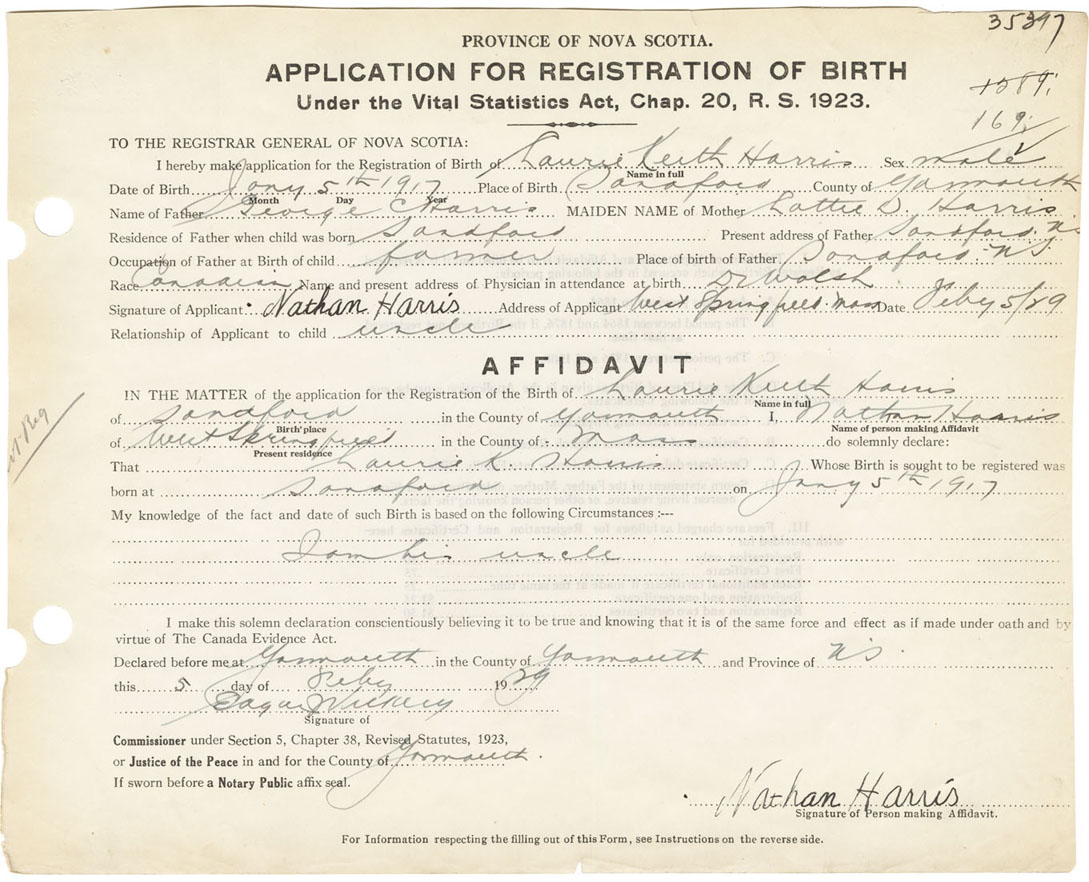 35397
PROVINCE OF NOVA SCOTIA.
APPLICATION FOR REGISTRATION OF BIRTH
Under the Vital Statistics Act, Chap. 20, R. S. 1923.
169
TO THE REGISTRAR GENERAL OF NOVA SCOTIA:
I hereby make application for the Registration of Birth of Laurie Keith Harris Sex male
Name in full
Date of Birth Jany 5th 1917 Place of Birth Sandford County of Yarmouth
Month Day Year
Name of Father George C Harris MAIDEN NAME of Mother Lottie D. Harris
Residence of Father when child was born Sandford Present address of Father Sandford. NS
Occupation of Father at Birth of child farmer Place of birth of Father Sandford. NS
Race Canadian Name and present address of Physician in attendance at birth Dr Walsh
Signature of Applicant Nathan Harris Address of Applicant West Springfield Mass Date Feby 5/29
Relationship of Applicant to child uncle
AFFIDAVIT
IN THE MATTER of the application for the Registration of the Birth of Laurie Keith Harris
Name in full
of Sandford in the County of Yarmouth I, Nathan Harris
Birth place Name of person making Affidavit
of West Springfield in the County of Mass do solemnly declare:
Present residence
That Laurie K. Harris Whose Birth is sought to be registered was
born at Sandford on Jany 5th 1917
My knowledge of the fact and date of such Birth is based on the following Circumstances :---
I am his uncle
I make this solemn declaration conscientiously believing it to be true and knowing that it is of the same force and effect as if made under oath and by
virtue of The Canada Evidence Act.
Declared before me at Yarmouth in the County of Yarmouth and Province of NS.
this 5 day of Feby 1929
Edgar Vickery
Signature of
Commissioner under Section 5, Chapter 38, Revised Statutes, 1923,
or Justice of the Peace in and for the County of Yarmouth.
If sworn before a Notary Public affix seal.
Nathan Harris
Signature of Person making Affidavit.
For Information respecting the filling out of this Form, see Instructions on the reverse side.